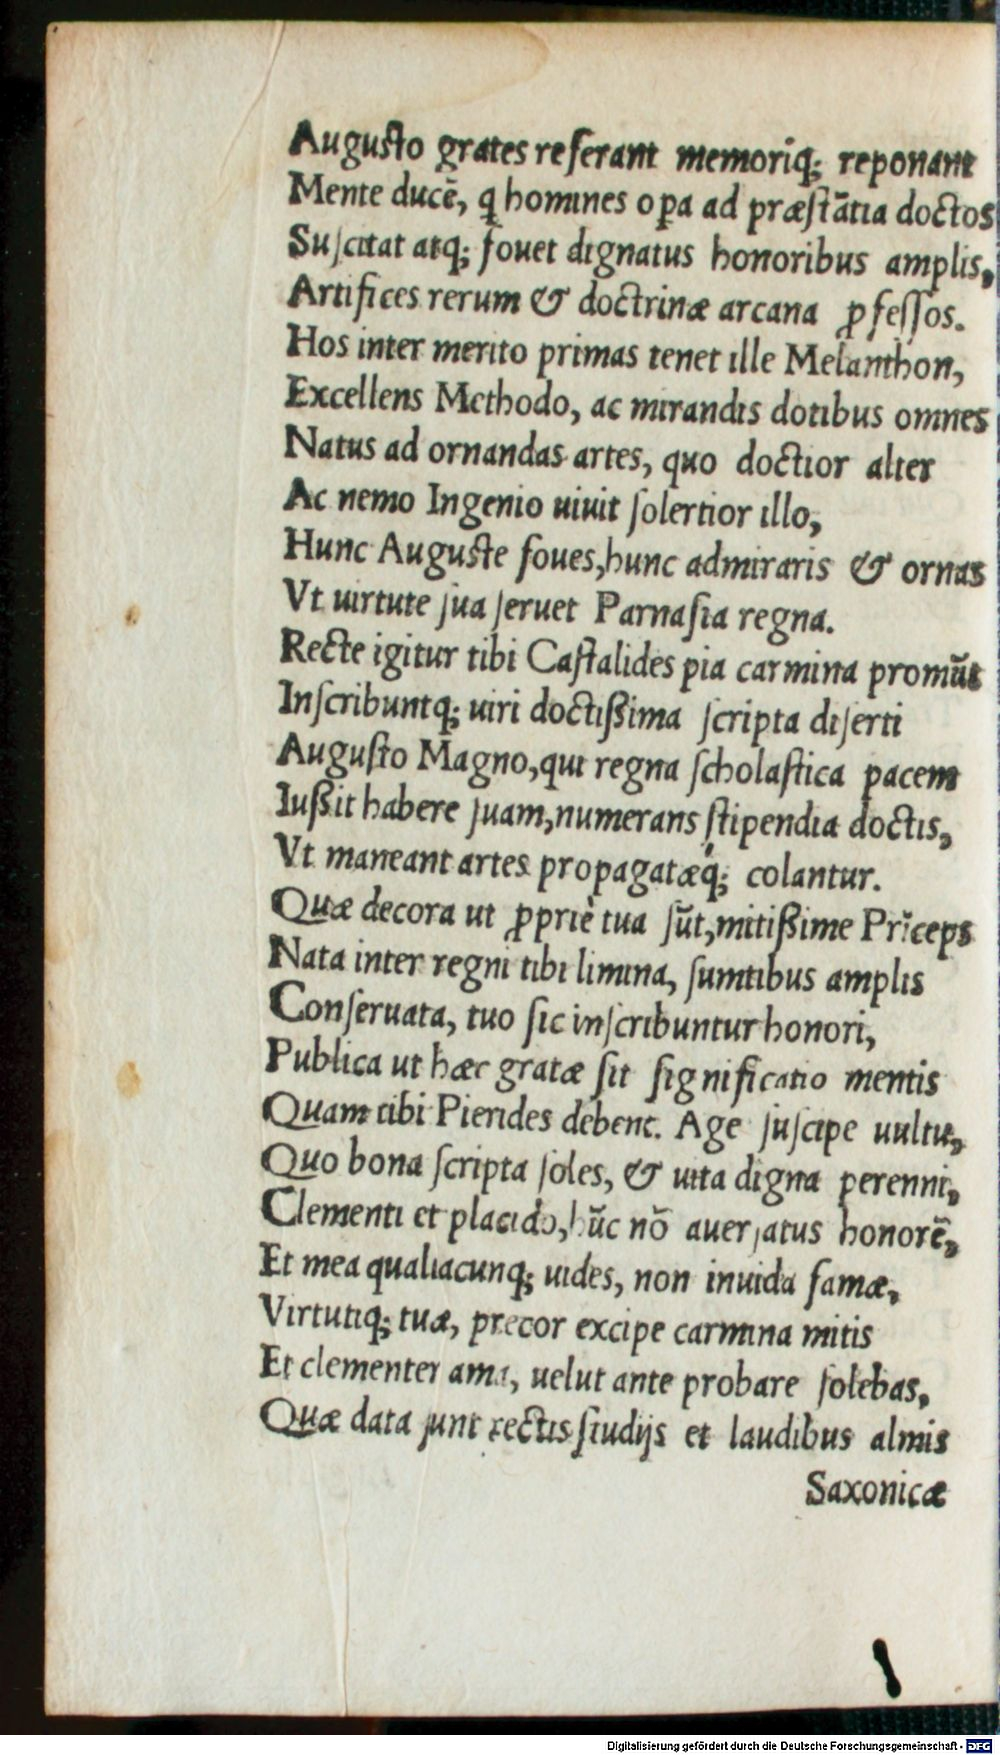 Auguſto grates referant memoriq́; reponant
Mente ducē, ꝗ homines oꝑa ad præſtātia doctos
Suſcitat atq́; fouet dignatus honoribus amplis,
Artifices rerum & doctrinæ arcana ꝓfeſſos.
Hos inter merito primas tenet ille Melanthon,
Excellens Methodo, ac mirandis dotibus omnes
Natus ad ornandas artes, quo doctior alter
Ac nemo Ingenio uiuit ſolertior illo,
Hunc Auguſte foues, hunc admiraris & ornas
Vt uirtute ſua ſeruet Parnaſia regna.
Recte igitur tibi Caſtalides pia carmina promūt
Inſcribuntq́; uiri doctißima ſcripta diſerti
Auguſto Magno, qui regna ſcholaſtica pacem
Iußit habere ſuam, numerans ſtipendia doctis,
Vt maneant artes propagatæq́; colantur.
Quæ decora ut ꝓpriè tua ſūt, mitißime Prīceps
Nata inter regni tibi limina, ſumtibus amplis
Conſeruata, tuo ſic inſcribuntur honori,
Publica ut hæc gratæ ſit ſignificatio mentis
Quam tibi Pierides debent. Age ſuſcipe uultu,
Quo bona ſcripta ſoles, & uita digna perenni,
Clementi et placido, hūc nō auerſatus honorē,
Et mea qualiacunq́; uides, non inuida famæ,
Virtutiq́; tuæ, precor excipe carmina mitis
Et clementer ama, uelut ante probare ſolebas,
Quæ data ſunt rectis ſtudijs et laudibus almis
Saxonicæ
Digitalisierung gefördert durch die Deutsche Forschungsgemeinschaft - DFG